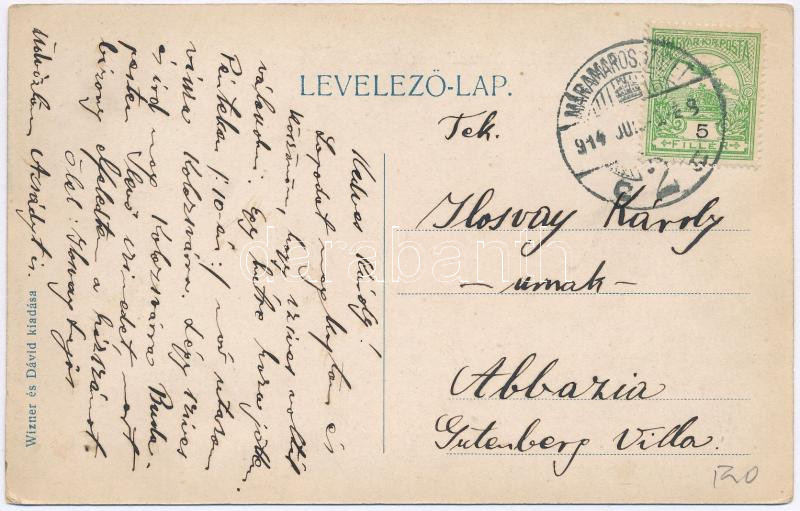 LEVELEZŐ-LAP.
MAGYAR KIR. POSTA
5
FILLÉR
MÁRAMAROS
914 JUL.
Tek.
Ilosvay Károly
- úrnak -
Abbazia
Gutenberg Villa.
120
Kedves Károly!
Lapodat megkaptam és
köszönöm, hogy szíves voltál
válaszolni. Egy hétre haza jöttem.
Pénteken /:10-én:/ már utazom
vissza Kolozsvárra. Légy szíves
és írd meg Kolozsvárra Buda-
pesten címedet mert
bizony elfeledtem a házszámot.
Ölel: Ilosvay Lajos
Üdvözlöm Arsádyt is.
Wizner és Dávid kiadása
darabanth